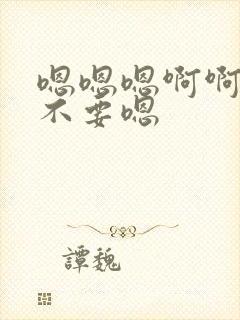 嗯嗯嗯啊啊
不要嗯
譚魏